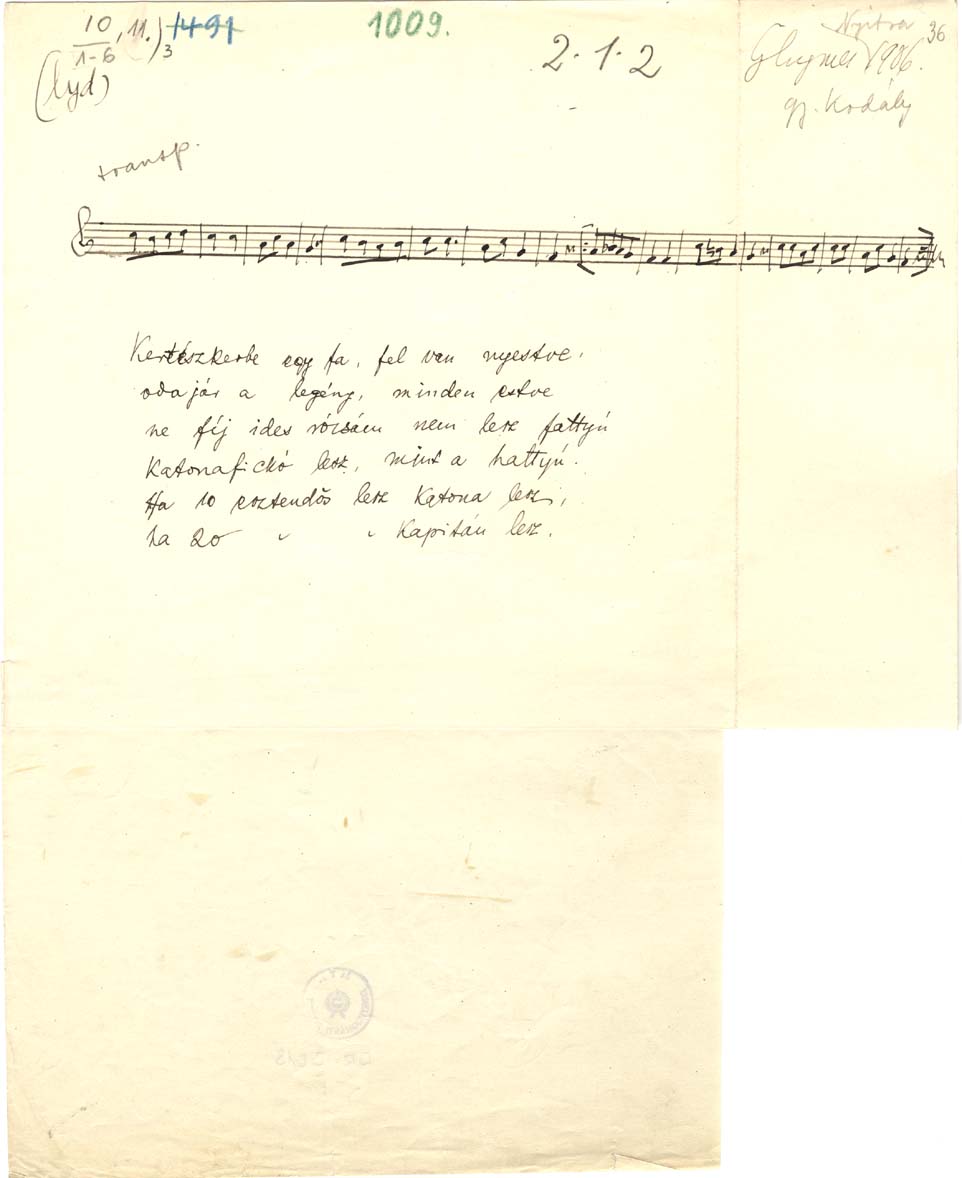 10, 11.)3 1491
1-6
(lyd)
1009.
2.1.2
Nyitra 36
Ghymes 1906.
gy. Kodály
transp.
Kertészkerbe egy fa, fel van nyestve,
oda jár a legény, minden estve
ne fíj ides rózsám nem lesz fattyú
Katonafickó lesz, mint a hattyú.
Ha 10 esztendős lesz Katona lesz,
ha 20 " " Kapitán lesz.